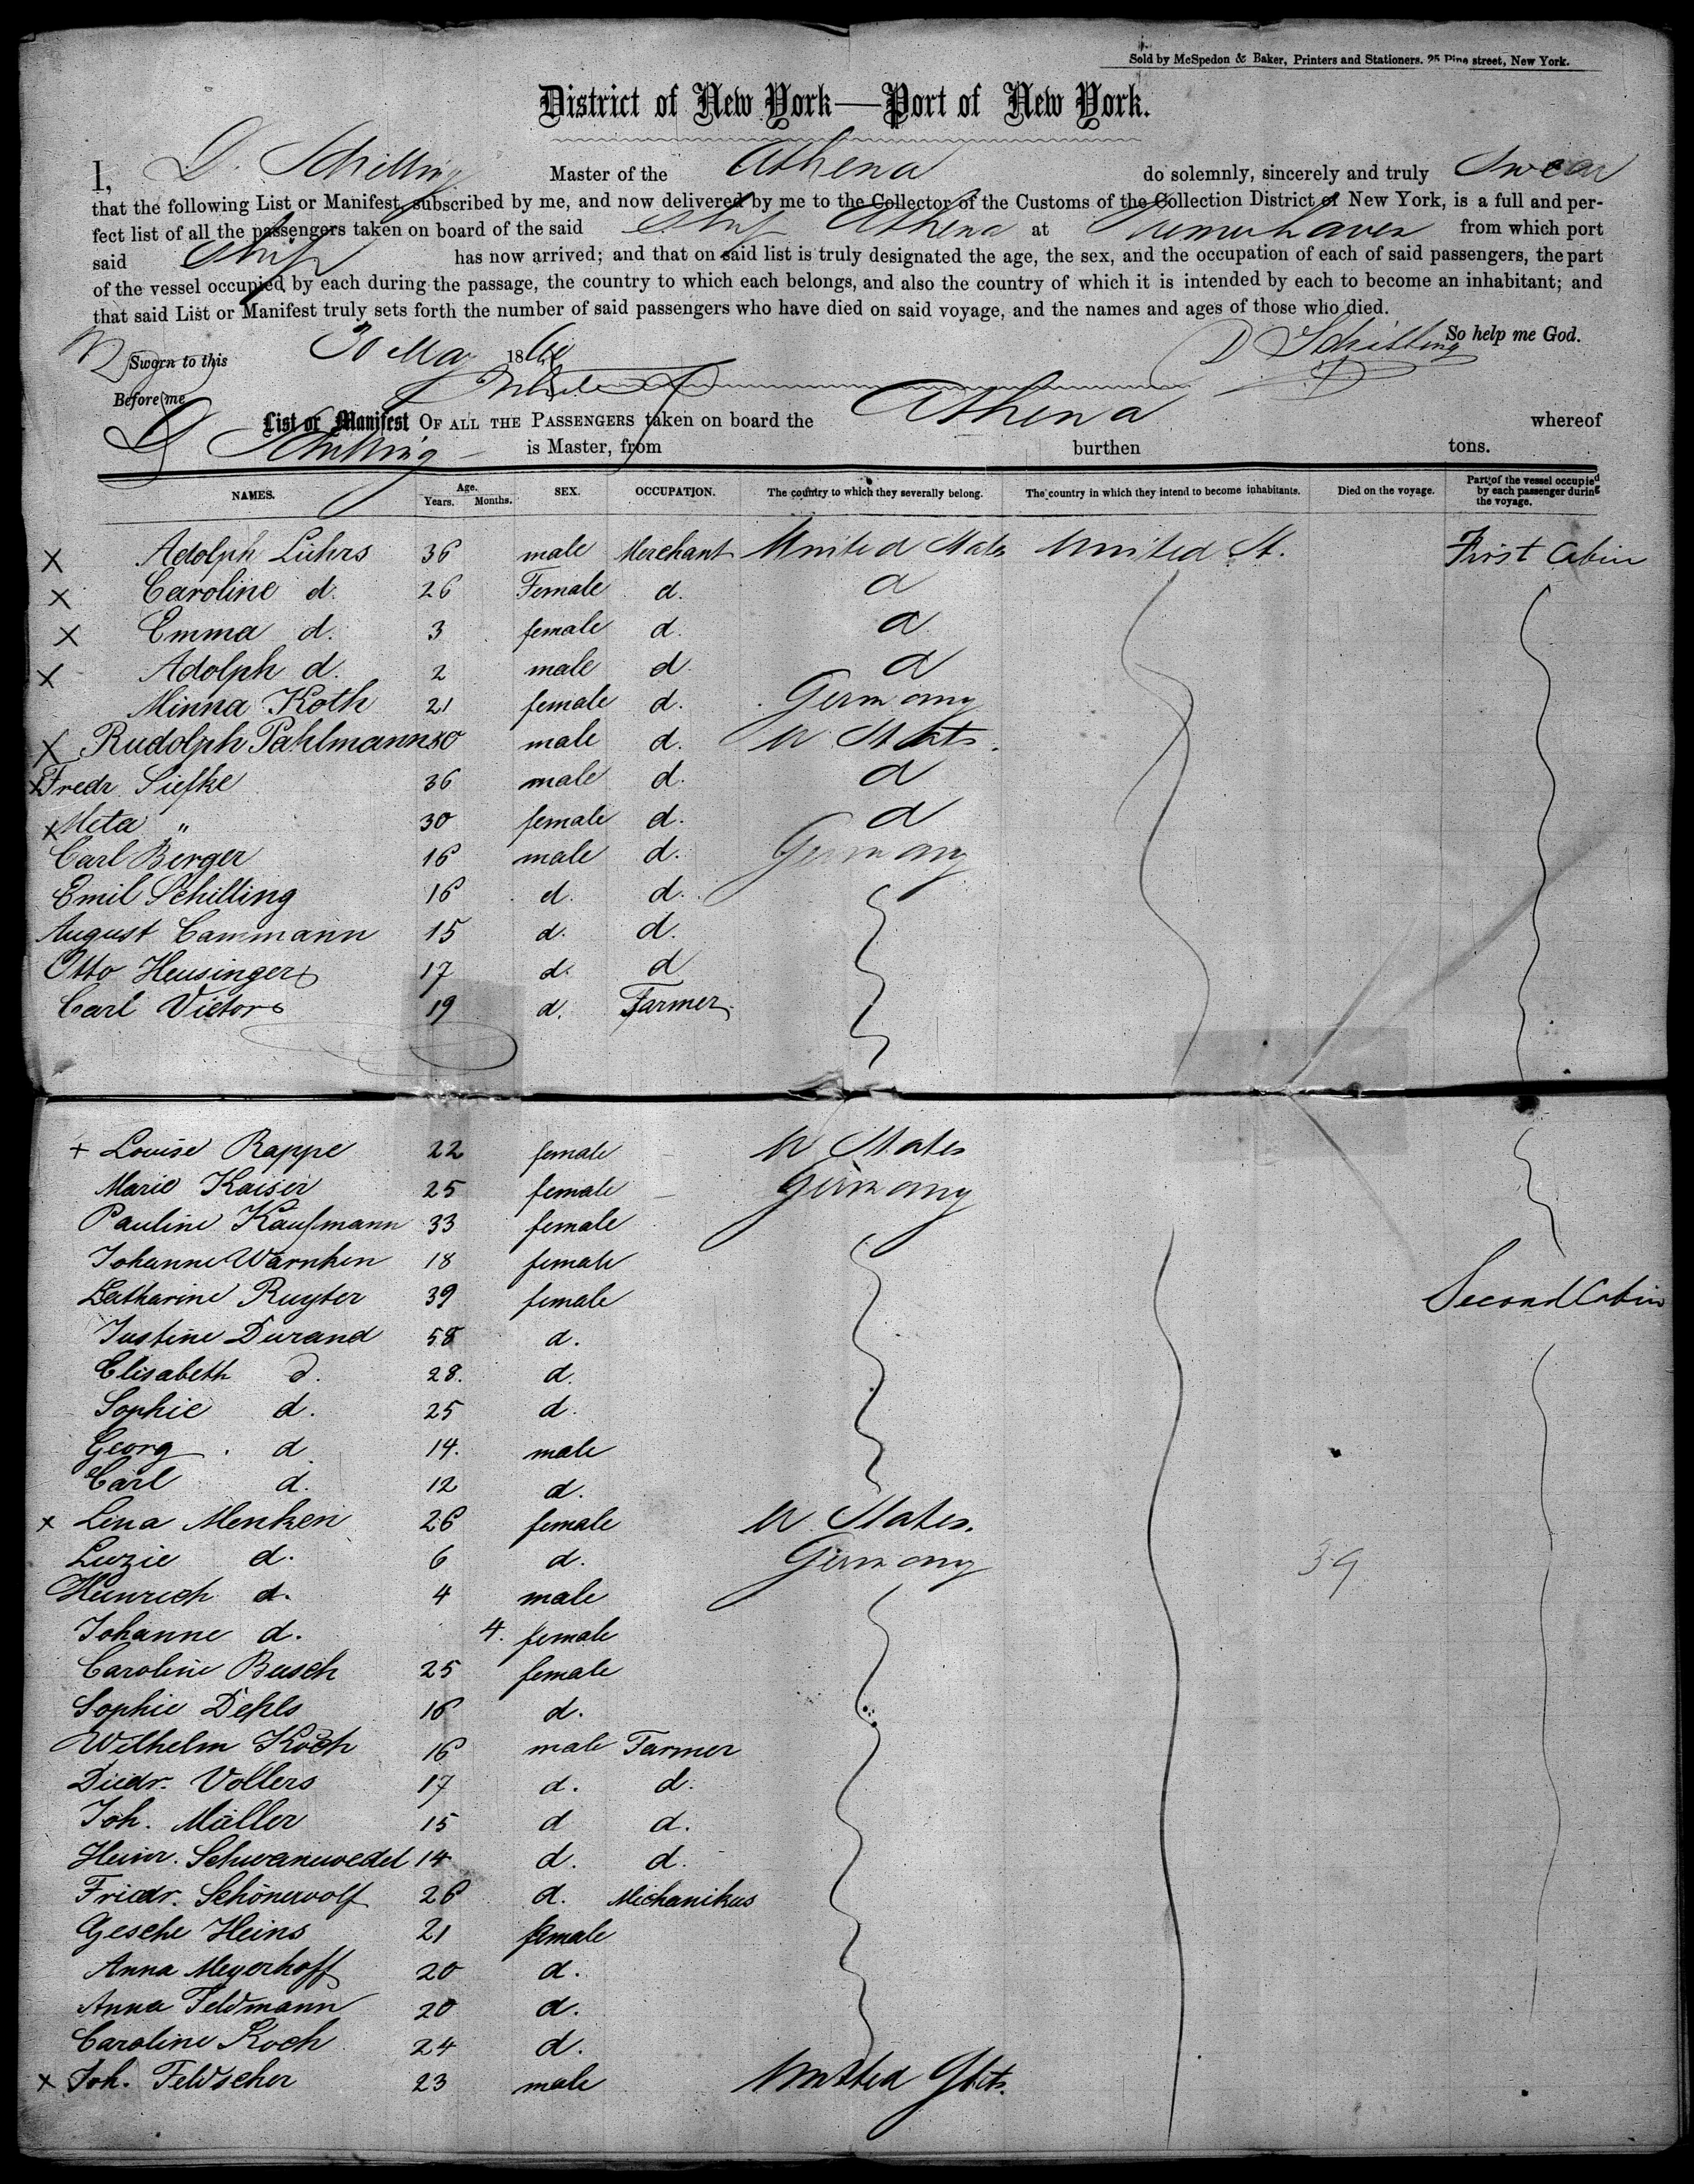 Sold by McSpedon & Baker, Printers and Stationers. 25 Pine street, New York.
District of New York—Port of New York.
I, D. Schilling Master of the Athena do solemnly, sincerely and truly Swear
that the following List or Manifest, subscribed by me, and now delivered by me to the Collector of the Customs of the Collection District of New York, is a full and per-
fect list of all the passengers taken on board of the said Ship Athena at from which port
said Ship has now arrived; and that on said list is truly designated the age, the sex, and the occupation of each of said passengers, the part
of the vessel occupied by each during the passage, the country to which each belongs, and also the country of which it is intended by each to become an inhabitant; and
that said List or Manifest truly sets forth the number of said passengers who have died on said voyage, and the names and ages of those who died.
So help me God.
Sworn to this 30 May 1860 D Schilling
Before me
List or Manifest OF ALL THE PASSENGERS taken on board the Athena whereof
D Schilling is Master, from burthen tons.
NAMES. Age. Years. Months. SEX. OCCUPATION. The country to which they severally belong. The country in which they intend to become inhabitants. Died on the voyage. Part of the vessel occupied by each passenger during the voyage.
X Adolph Lührs 36 male Merchant United States United St. First Cabin
X Caroline d. 26 Female d. d
X Emma d. 3 female d. d
X Adolph d. 2 male d. d
Minna Koth 21 female d. Germany
X Rudolph Pahlmann 30 male d. U States.
X Fredr Siefke 36 male d. d
X Meta " 30 female d. d
Carl Berger 16 male d. Germany
Emil Schilling 16 d. d.
August Cammann 15 d. d.
Otto Heusinger 17 d. d
Carl Victor 19 d. Farmer
+ Louise Rappe 22 female U States
Marie Kaiser 25 female Germany
Pauline Kaufmann 33 female
Johanne Warnken 18 female
Catharine Ruyter 39 female Second Cabin
Justine Durand 58 d.
Elisabeth d. 28. d.
Sophie d. 25 d.
Georg d 14. male
Carl d. 12 d.
x Lina Menken 26 female U. States.
Luzie d. 6 d. Germany 39
Heinrich d. 4 male
Johanne d. 4. female
Caroline Busch 25 female
Sophie Dehls 16 d.
Wilhelm Koch 16 male Farmer
Diedr. Vollers 17 d. d.
Joh. Müller 15 d d.
Heinr. Schwanewedel 14 d. d.
Friedr. Schönewolf 26 d. Mechanikus
Gesche Heins 21 female
Anna Meyerhoff 20 d.
Anna Feldmann 20 d.
Caroline Koch 24 d.
x Joh. Feldscher 23 male United States.